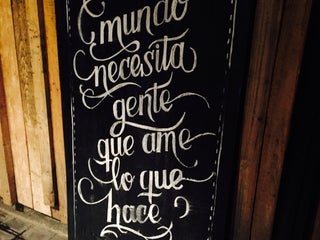 mundo
necesita
gente
que ame
lo que
hace